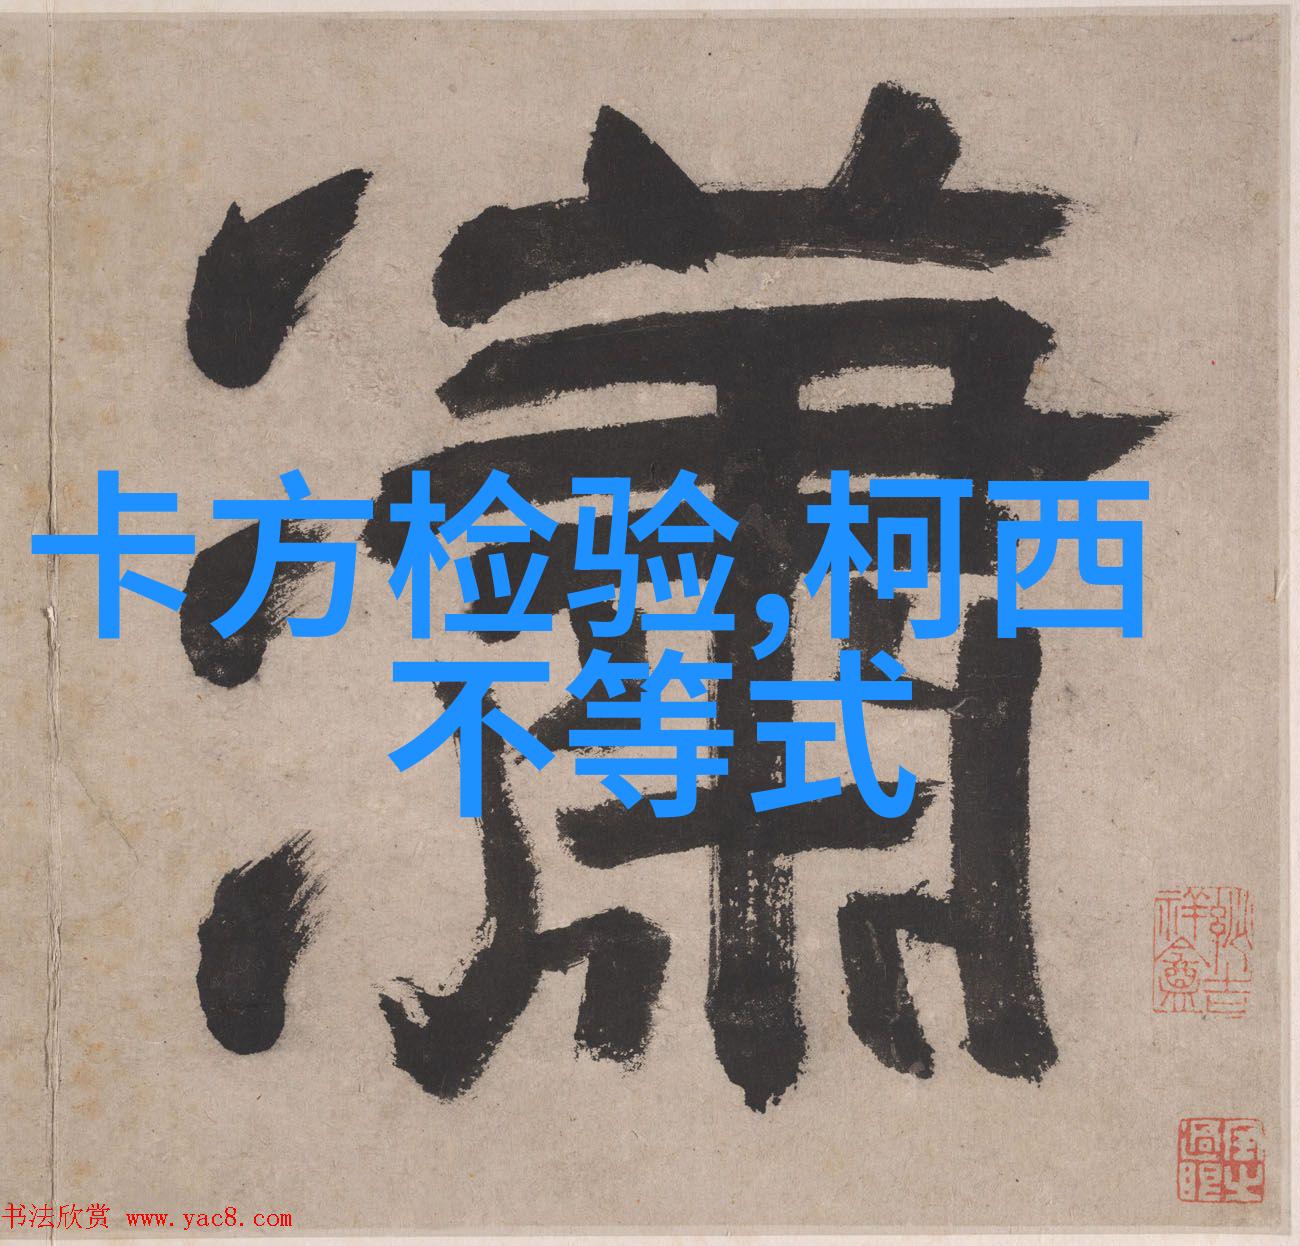 瀟
卡方检验,柯西
不等式
书法欣赏 www.yac8.com